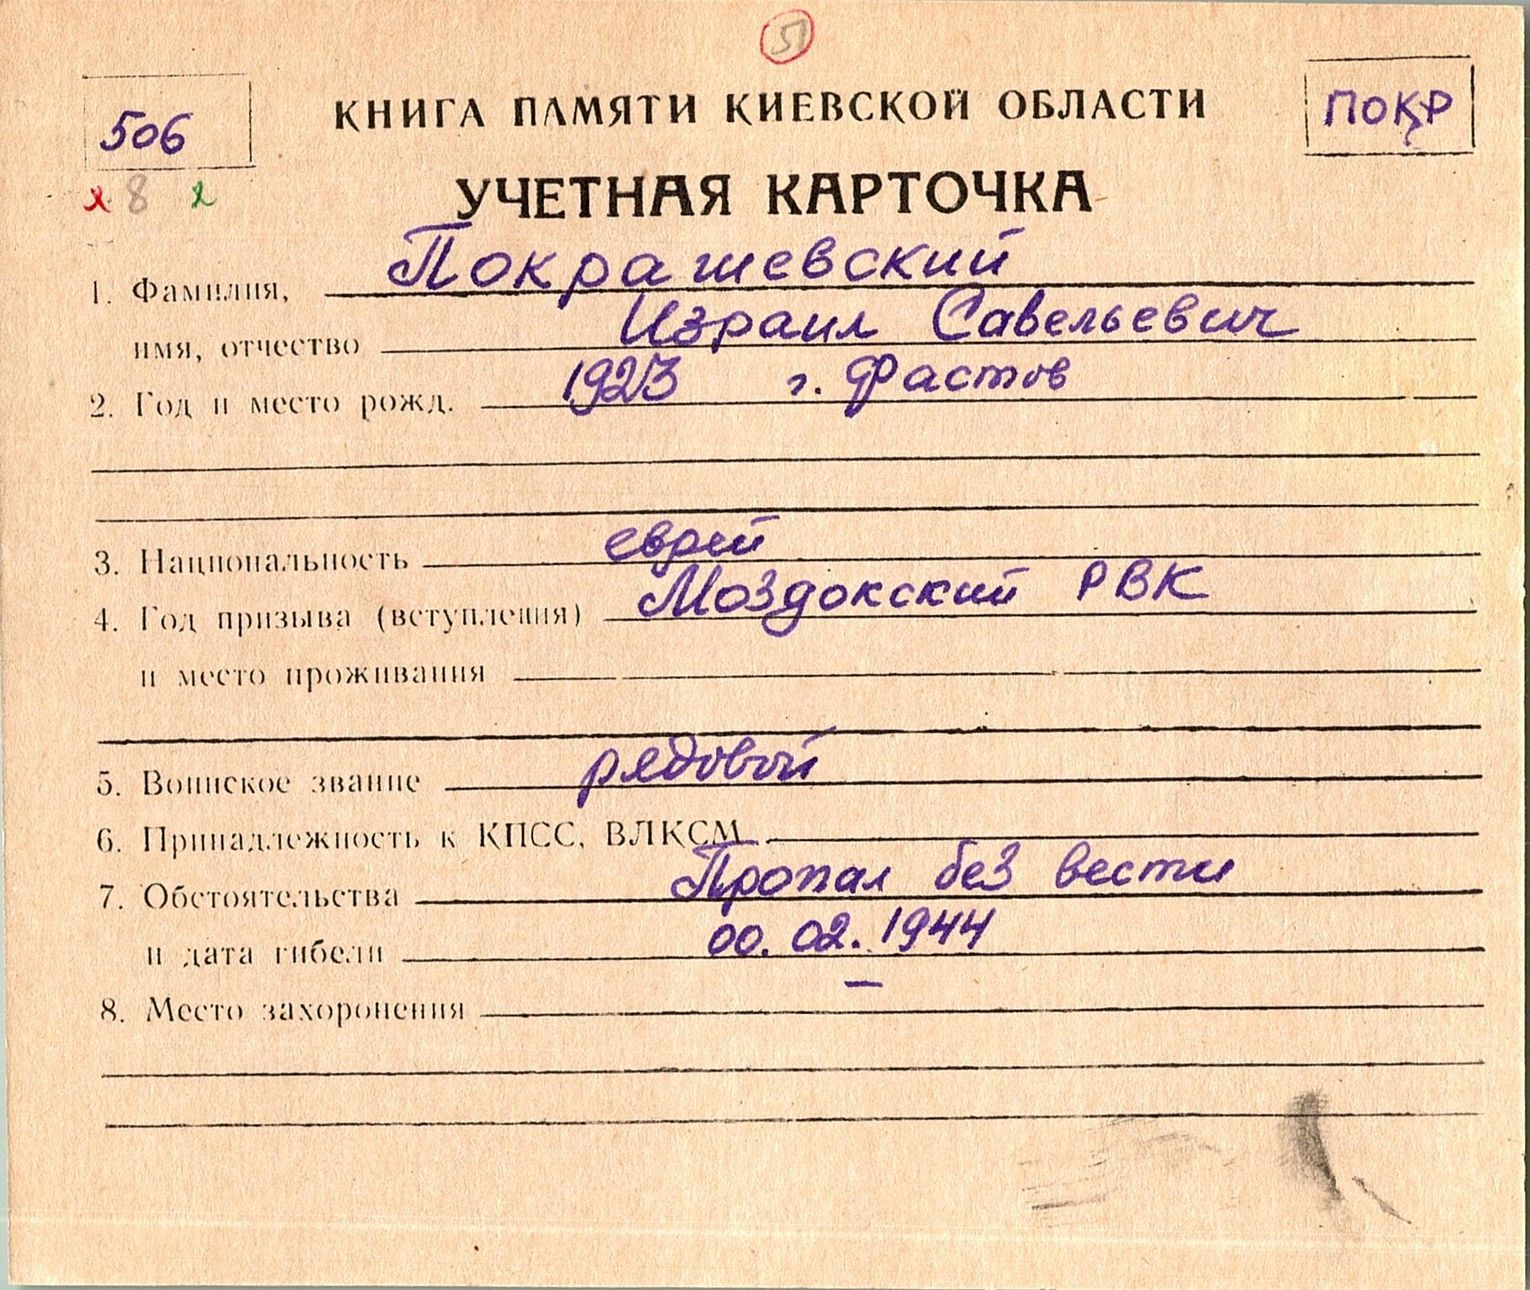 51
506
КНИГА ПАМЯТИ КИЕВСКОЙ ОБЛАСТИ
ПОКР
8
УЧЕТНАЯ КАРТОЧКА
1. Фамилия, Покрашевский
имя, отчество Израил Савельевич
2. Год и место рожд. 1923 г. Фастов
3. Национальность еврей
4. Год призыва (вступления) Моздокский РВК
и место проживания
5. Воинское звание рядовой
6. Принадлежность к КПСС, ВЛКСМ
7. Обстоятельства Пропал без вести
и дата гибели 00.02.1944
8. Место захоронения –